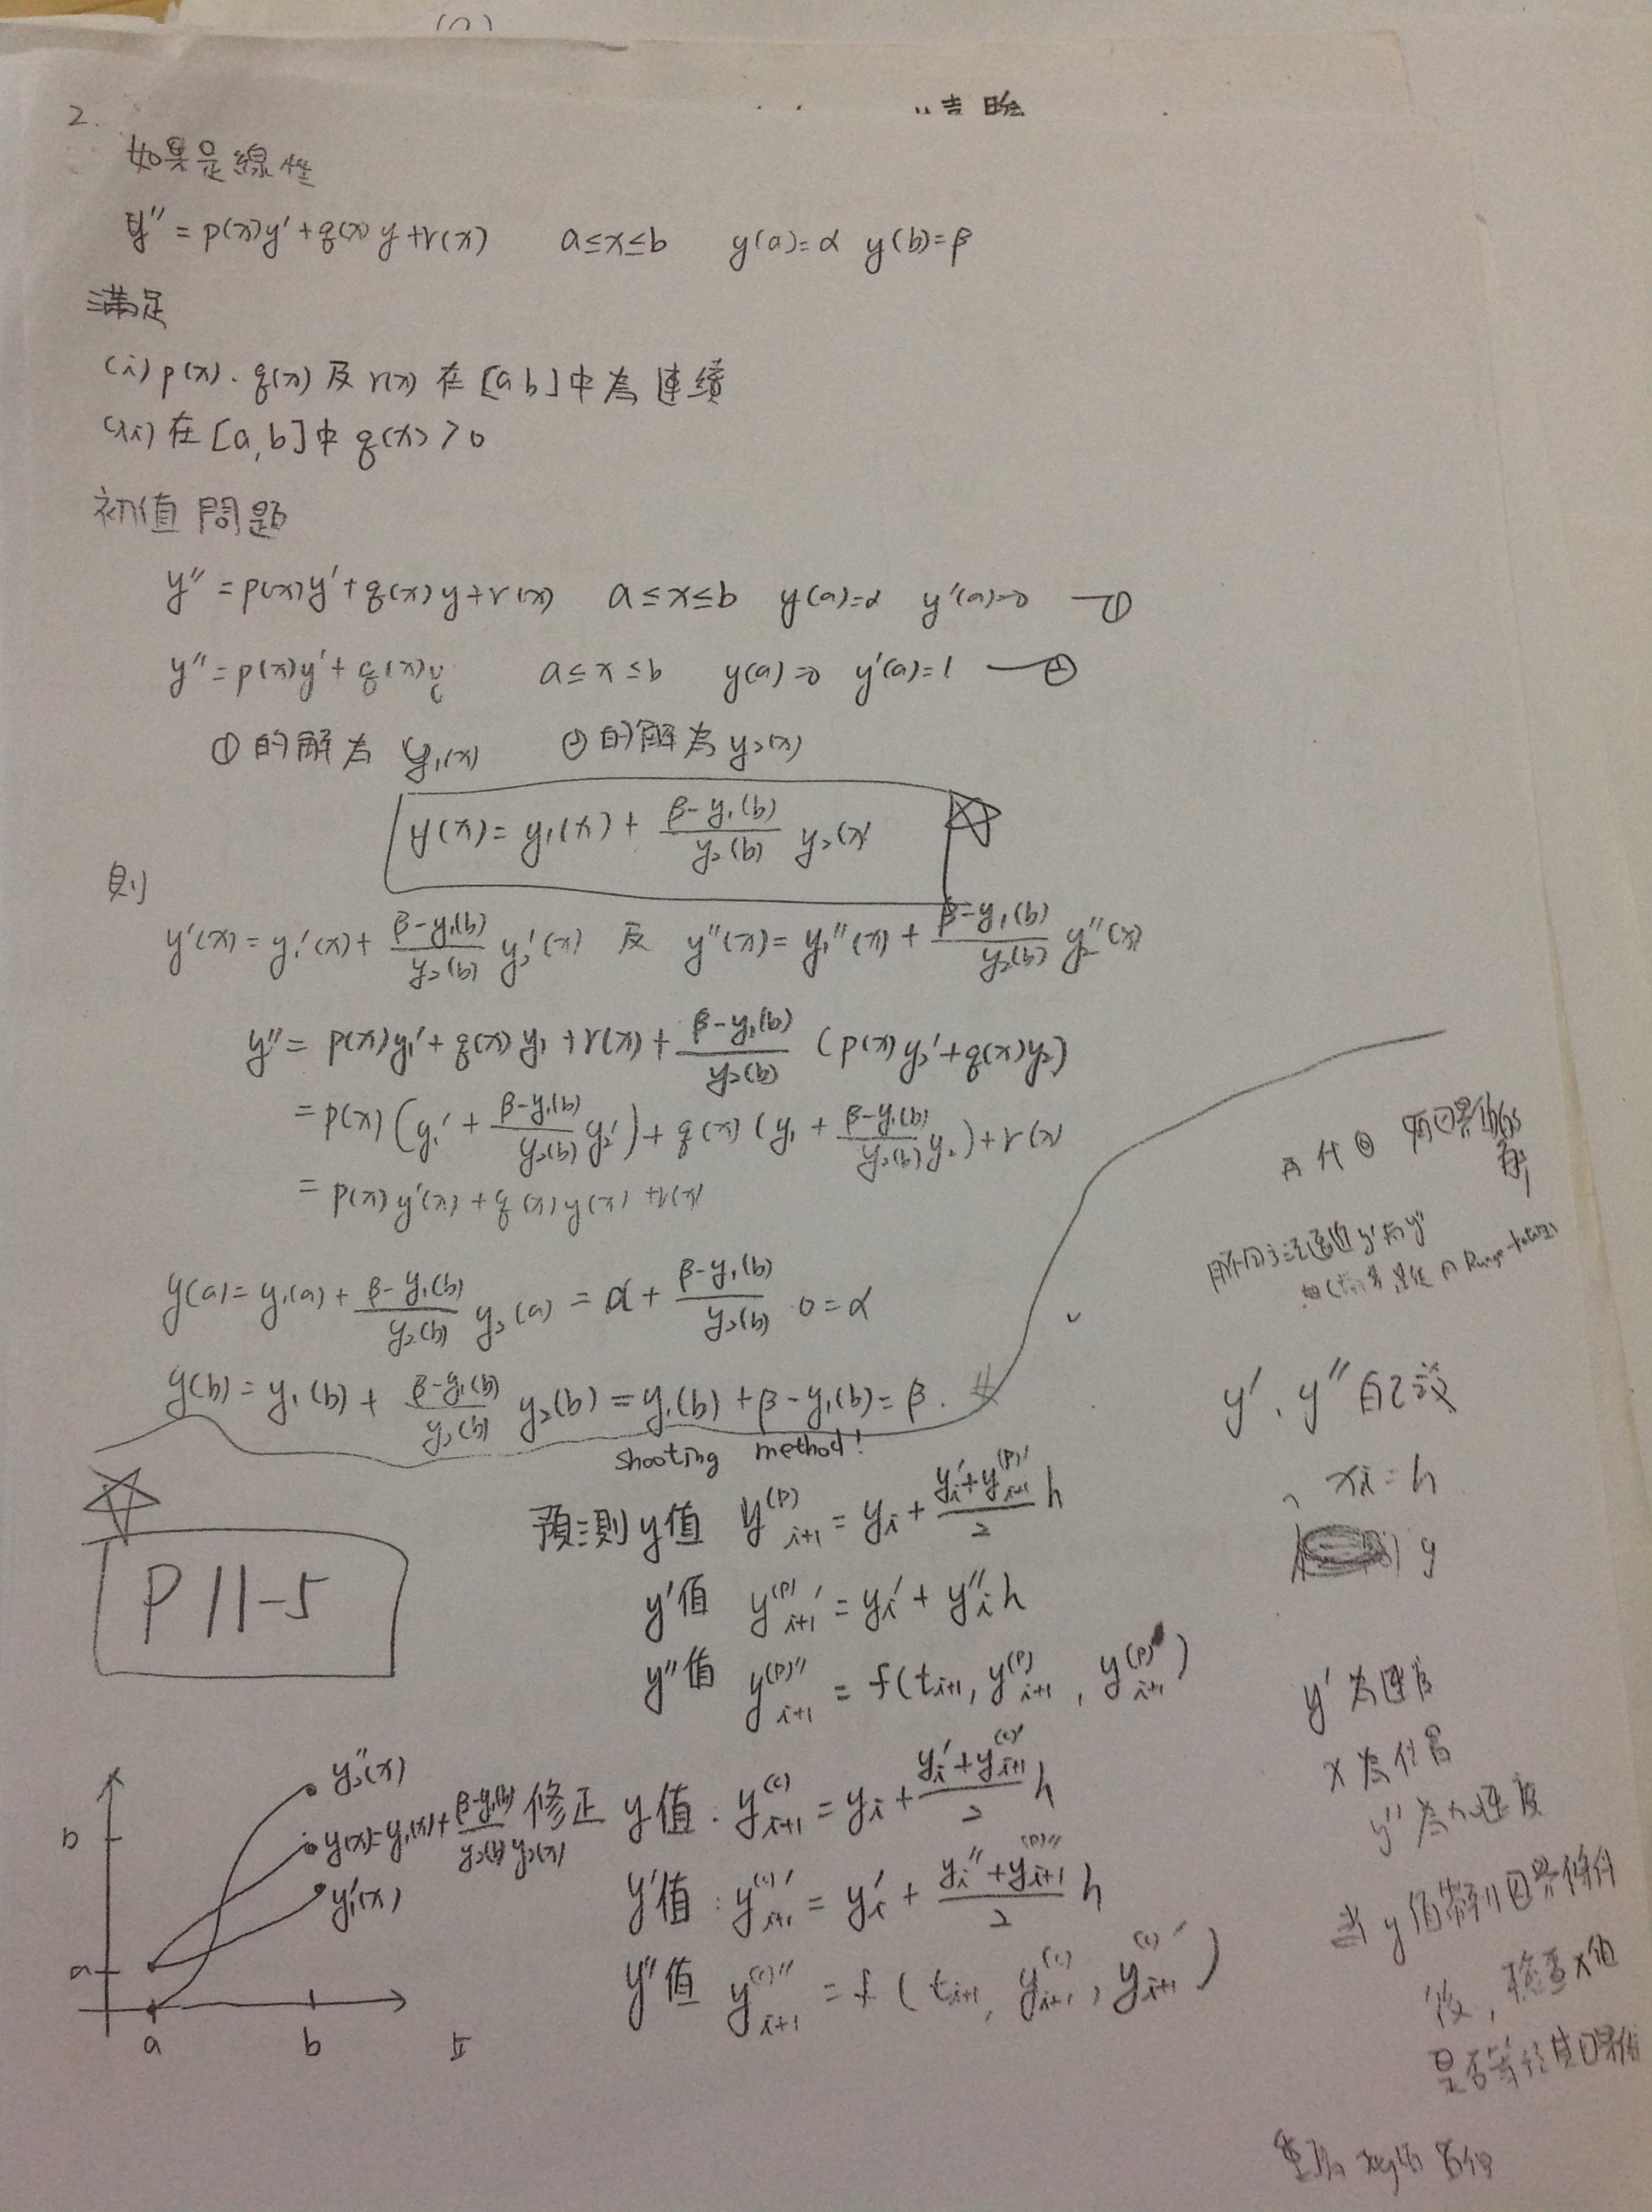 2.
如果是線性
y" = p(x)y' + q(x)y + r(x)  a≤x≤b  y(a)=α  y(b)=β
滿足
(i) p(x)、q(x) 及 r(x) 在 [a b] 中為連續
(ii) 在 [a,b] 中 q(x) > 0
初值問題
y" = p(x)y' + q(x)y + r(x)  a≤x≤b  y(a)=α  y'(a)=0 —①
y" = p(x)y' + q(x)y  a≤x≤b  y(a)=0  y'(a)=1 —②
①的解為 y₁(x)  ②的解為 y₂(x)
y(x) = y₁(x) + (β-y₁(b))/(y₂(b)) y₂(x)
則
y'(x) = y₁'(x) + (β-y₁(b))/(y₂(b)) y₂'(x) 及 y"(x) = y₁"(x) + (β-y₁(b))/(y₂(b)) y₂"(x)
y" = p(x)y₁' + q(x)y₁ + r(x) + (β-y₁(b))/(y₂(b)) (p(x)y₂' + q(x)y₂)
= p(x)(y₁' + (β-y₁(b))/(y₂(b)) y₂') + q(x)(y₁ + (β-y₁(b))/(y₂(b)) y₂) + r(x)
= p(x)y'(x) + q(x)y(x) + r(x)
y(a) = y₁(a) + (β-y₁(b))/(y₂(b)) y₂(a) = α + (β-y₁(b))/(y₂(b)) 0 = α
y(b) = y₁(b) + (β-y₁(b))/(y₂(b)) y₂(b) = y₁(b) + β - y₁(b) = β. #
shooting method!
P 11-5
預測 y值 y^(P)_{i+1} = y_i + (y_i' + y^(P)'_{i+1})/2 h
y'值 y^(P)'_{i+1} = y_i' + y"_i h
y"值 y^(P)"_{i+1} = f(t_{i+1}, y^(P)_{i+1}, y^(P)_{i+1})
修正 y值: y^(c)_{i+1} = y_i + (y_i' + y^(c)'_{i+1})/2 h
y'值: y^(c)'_{i+1} = y_i' + (y_i" + y^(P)"_{i+1})/2 h
y"值 y^(c)"_{i+1} = f(t_{i+1}, y^(c)_{i+1}, y^(c)'_{i+1})
y₂"(x)
y(x)=y₁(x)+(β-y₁(b))/(y₂(b)) y₂(x)
y₁'(x)
b
a
a  b
y'、y" 自己設
xi = h
y
y' 為速度
x 為位置
y" 為加速度
當 y值帶到囗界條件
後，檢查x值
是否等於其囗界值